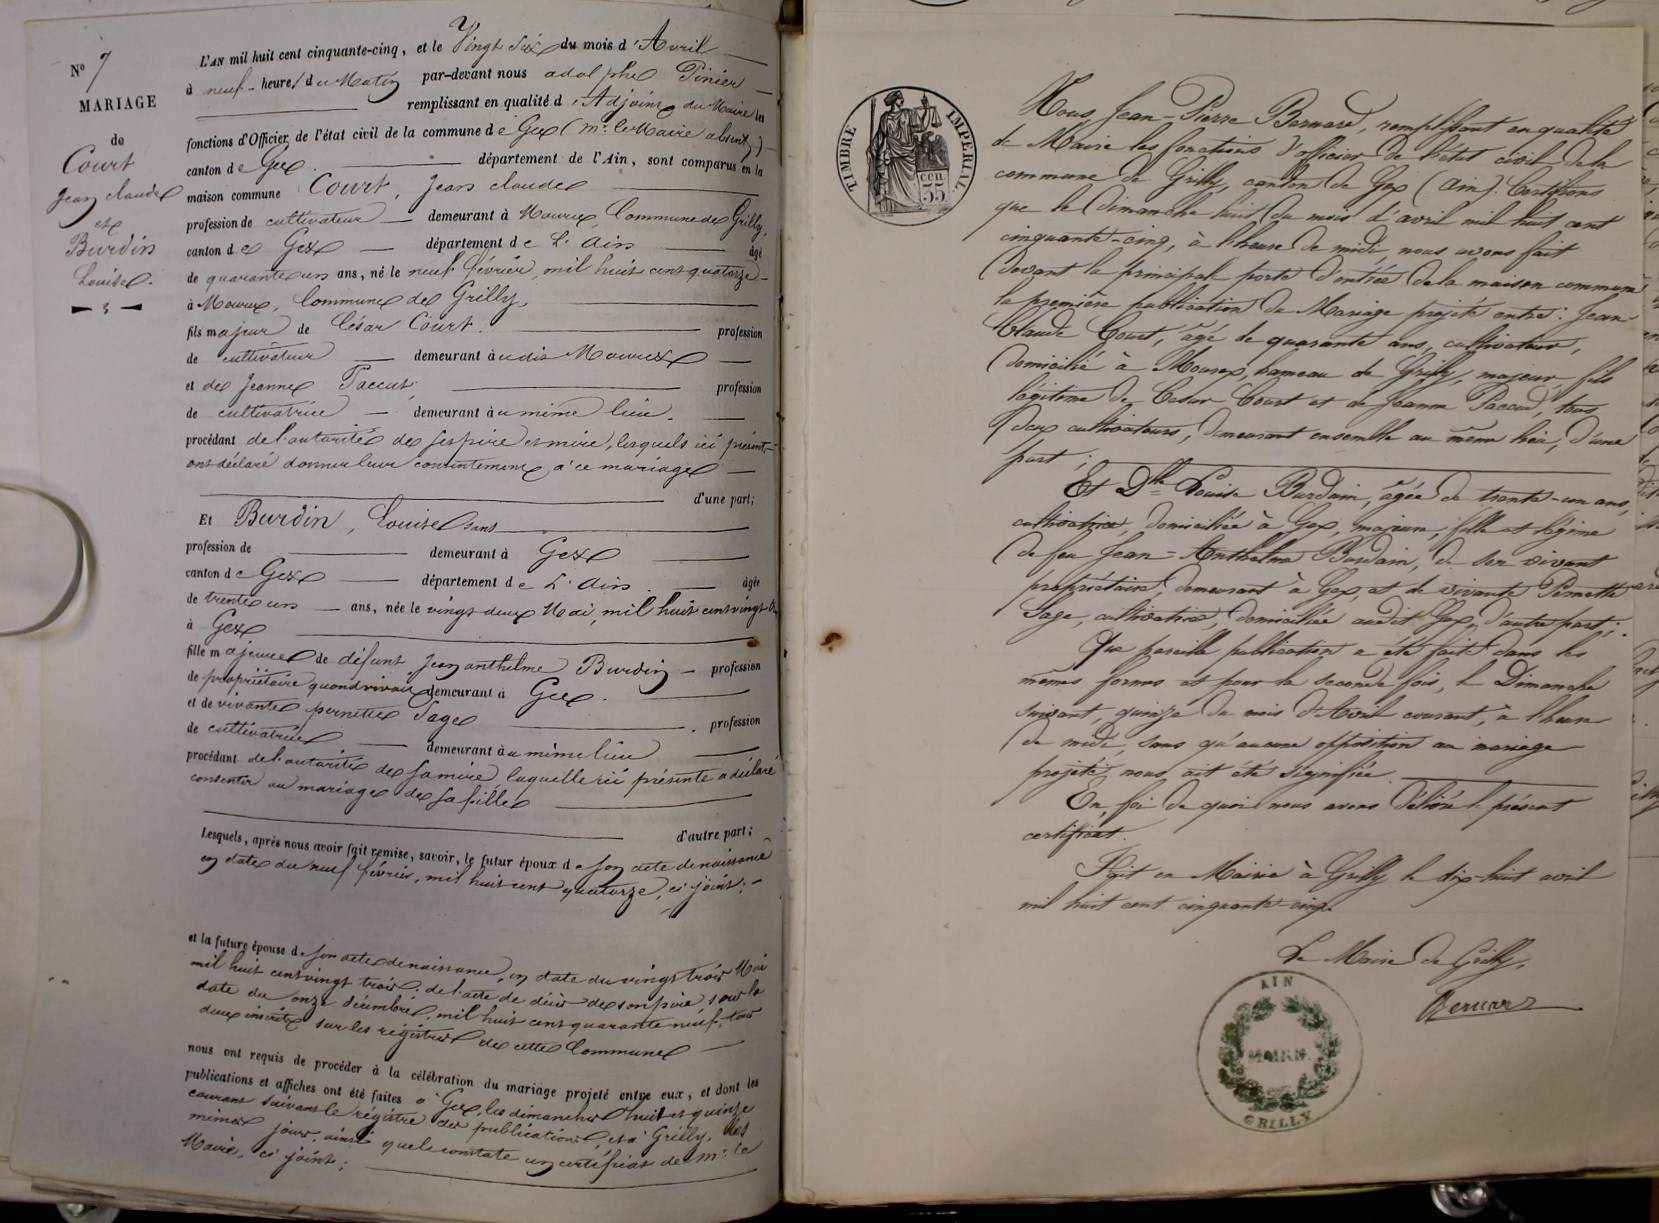 N° 7
MARIAGE
de
Court
Jean Claude
et
Burdin
Louise.
L'AN mil huit cent cinquante-cinq, et le Vingt Six du mois d'Avril
à neuf heures du Matin par-devant nous adolphe Pinier
remplissant en qualité d'Adjoint du Maire les
fonctions d'Officier de l'état civil de la commune de Gex (mr. le Maire absent)
canton de Gex département de l'Ain, sont comparus en la
maison commune Court, Jean claude
profession de cultivateur demeurant à Mourex, Commune de Grilly,
canton de Gex département de L'Ain âgé
de quarante un ans, né le neuf février, mil huit cent quatorze
à Mourex, Commune de Grilly,
fils majeur de César Court. profession
de cultivateur demeurant à udit Mourex
et de Jeanne Paccut, profession
de cultivatrice demeurant au même lieu.
procédant de l'autorité de ses père et mère, lesquels ici présents
ont déclaré donner leur consentement à ce mariage
d'une part;
Et Burdin, Louise sans
profession de demeurant à Gex
canton de Gex département de L'Ain âgée
de trente un ans, née le vingt deux Mai, mil huit cent vingt
à Gex
fille majeure de défunt Jean anthelme Burdin profession
de propriétaire quand vivait demeurant à Gex.
et de vivante pernette Sage profession
de cultivatrice demeurant au même lieu
procédant de l'autorité de sa mère laquelle ici présente a déclaré
consentir au mariage de sa fille
d'autre part;
Lesquels, après nous avoir fait remise, savoir, le futur époux de son acte de naissance
en date du neuf février, mil huit cent quatorze, ci joint;
et la future épouse de son acte de naissance, en date du vingt trois Mai
mil huit cent vingt trois; de l'acte de décès de son père, sous la
date du onze décembre, mil huit cent quarante neuf, tous
deux inscrits sur les régistres de cette Commune
nous ont requis de procéder à la célébration du mariage projeté entre eux, et dont les
publications et affiches ont été faites à Gex, les dimanches huit et quinze
courant suivant le régistre des publications, et à Grilly, les
mêmes jours, ainsi que le constate un certificat de mr. le
Maire, ci joint;
TIMBRE IMPERIAL
35 cen.
Nous, Jean-Pierre Bernard, remplissant en qualité
de Maire les fonctions d'officier de l'état civil de la
commune de Grilly, canton de Gex (Ain). Certifions
que le Dimanche huit du mois d'avril mil huit cent
cinquante-cinq, à l'heure de midi, nous avons fait
devant la principale porte d'entrée de la maison commune
la première publication du Mariage projeté entre: Jean-
Claude Court, âgé de quarante ans, cultivateur,
domicilié à Mourex, hameau de Grilly, majeur, fils
légitime de César Court et de Jeanne Paccud, tous
deux cultivateurs, demeurant ensemble au même lieu, d'une
part;
Et Dlle Louise Burdain, âgée de trente-un ans,
cultivatrice, domiciliée à Gex, majeure, fille légitime
de feu Jean-Anthelme Burdain, de son vivant
propriétaire, demeurant à Gex, et de vivante Pernette
Sage, cultivatrice, domiciliée audit Gex, d'autre part;
Que pareille publication a été faite dans les
mêmes formes et pour la seconde fois, le Dimanche
suivant, quinze du mois d'Avril courant, à l'heure
de midi, sans qu'aucune opposition au mariage
projeté nous ait été signifiée.
En foi de quoi nous avons délivré le présent
certificat.
Fait en Mairie à Grilly le dix-huit avril
mil huit cent cinquante-cinq.
Le Maire de Grilly,
Bernard
AIN
MAIRIE
GRILLY